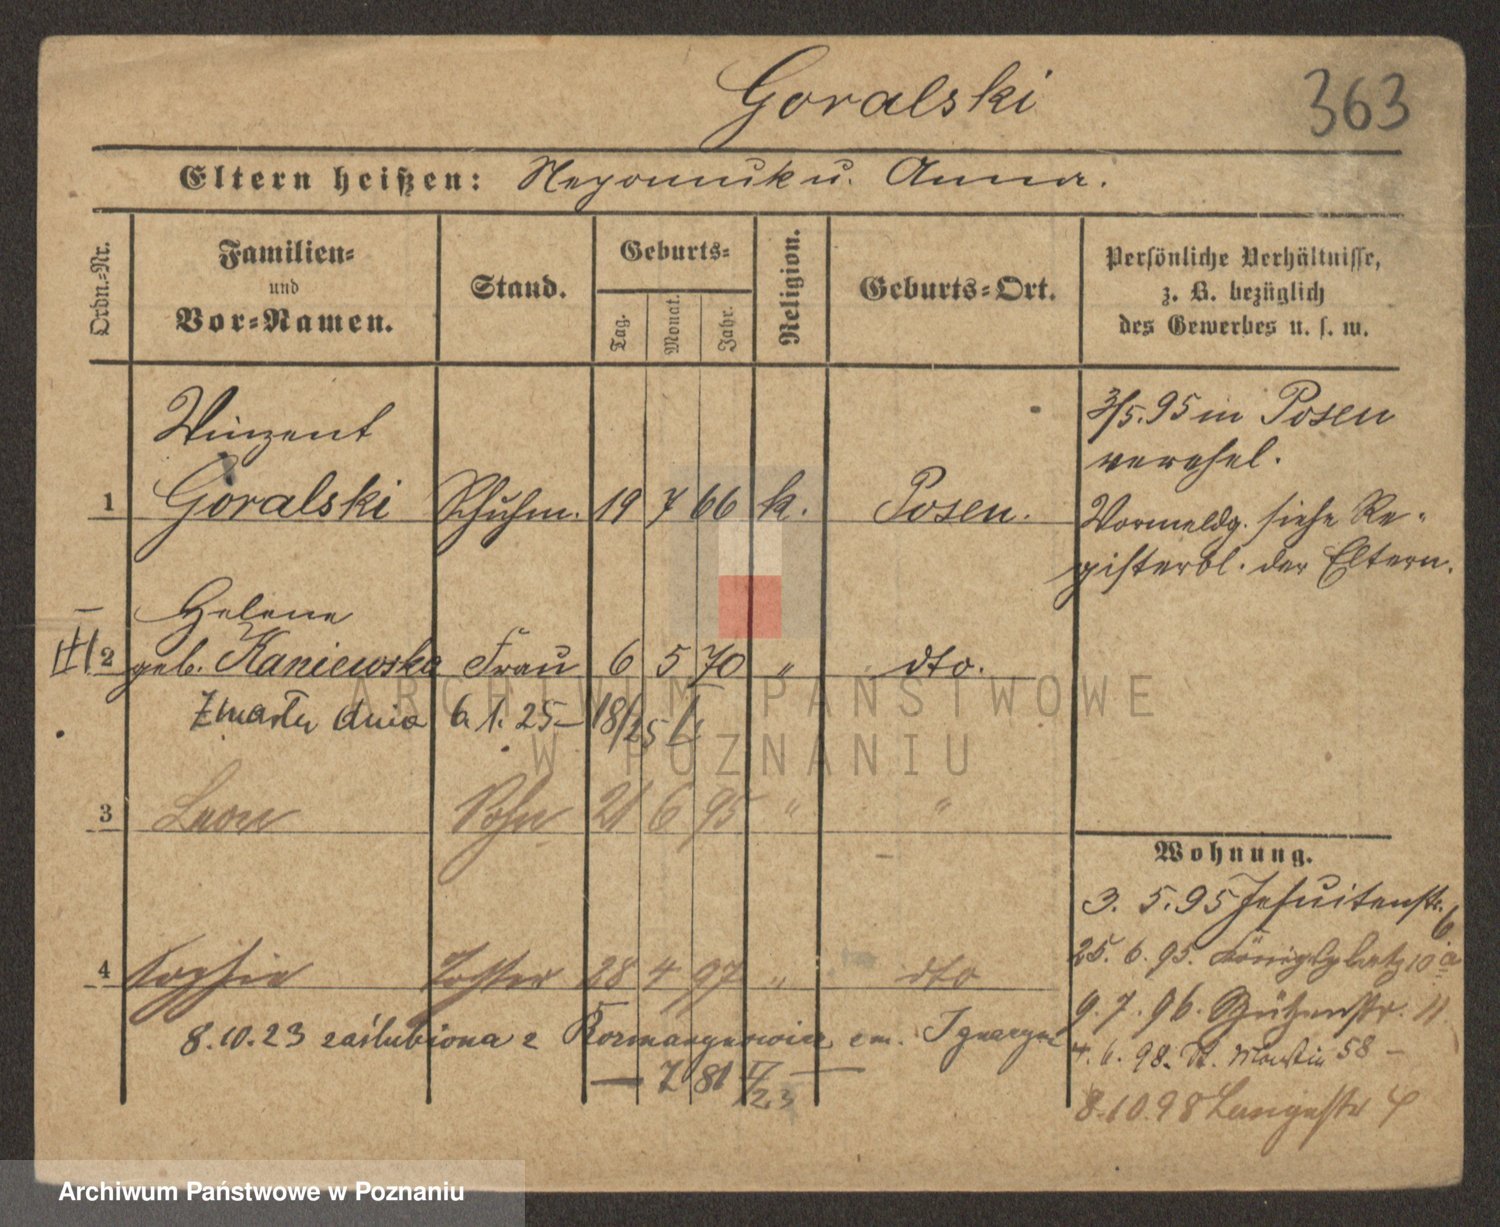 Goralski
363
Eltern heißen: Nepomuk u. Anna.
Ordn.-Nr.
Familien-
und
Vor-Namen.
Stand.
Geburts-
Tag.
Monat.
Jahr.
Religion.
Geburts-Ort.
Persönliche Verhältnisse,
z. B. bezüglich
des Gewerbes u. s. w.
Winzent
1 Goralski Schuhm. 19 7 66 k. Posen.
3/5.95 in Posen
verehel.
Vormeldg. siehe Re-
gisterbl. der Eltern.
Helene
2 geb. Kaniewska Frau 6 5 70 " dto.
Zmarła dnia 6.1.25 –
3 Leon Sohn 21 6 95 " "
4 Sophie Tochter 28 4 97 " dto
8.10.23 zaślubiona z
Wohnung.
3. 5. 95 Jesuitenstr. 6
25. 6. 95. Königsplatz 10a
9. 7. 96. Schützenstr. 11
4. 6. 98. St. Martin 58 –
8.10.98 Langestr 4
ARCHIWUM PAŃSTWOWE
W POZNANIU
Archiwum Państwowe w Poznaniu